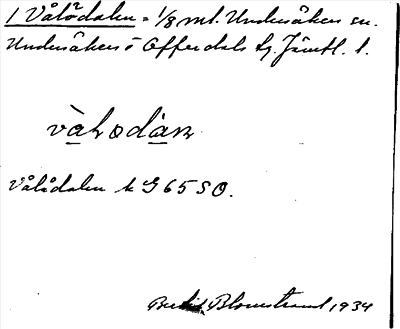 1 Vålådalen = 1/8 mtl. Undersåkers sn.
Undersåkers o Offerdals tg. Jämtl. l.
vàlodàn
Vålådalen k G 65 SO.
Bertil Blomstrand 1934